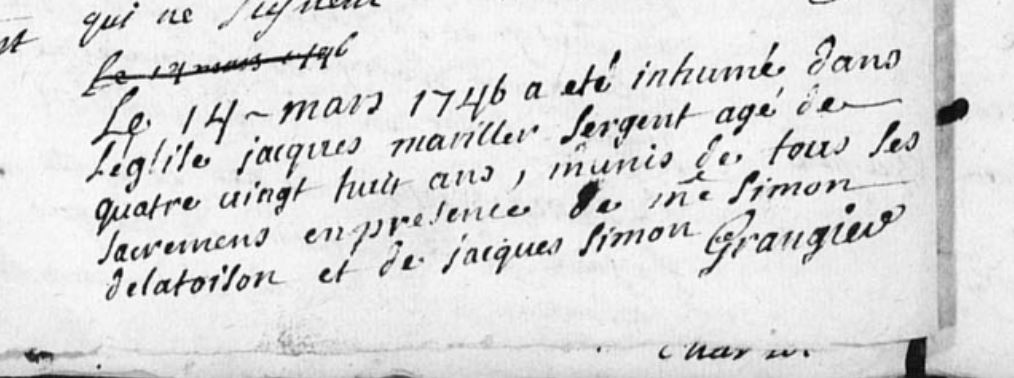 qui ne signent
Le 14 mars 1746
Le 14 mars 1746 a eté inhumé dans
Leglise jacques mariller sergent agé de
quatre vingt huit ans, munis de tous ses
sacremens en presence de me Simon
delatoison et de jacques simon Grangier